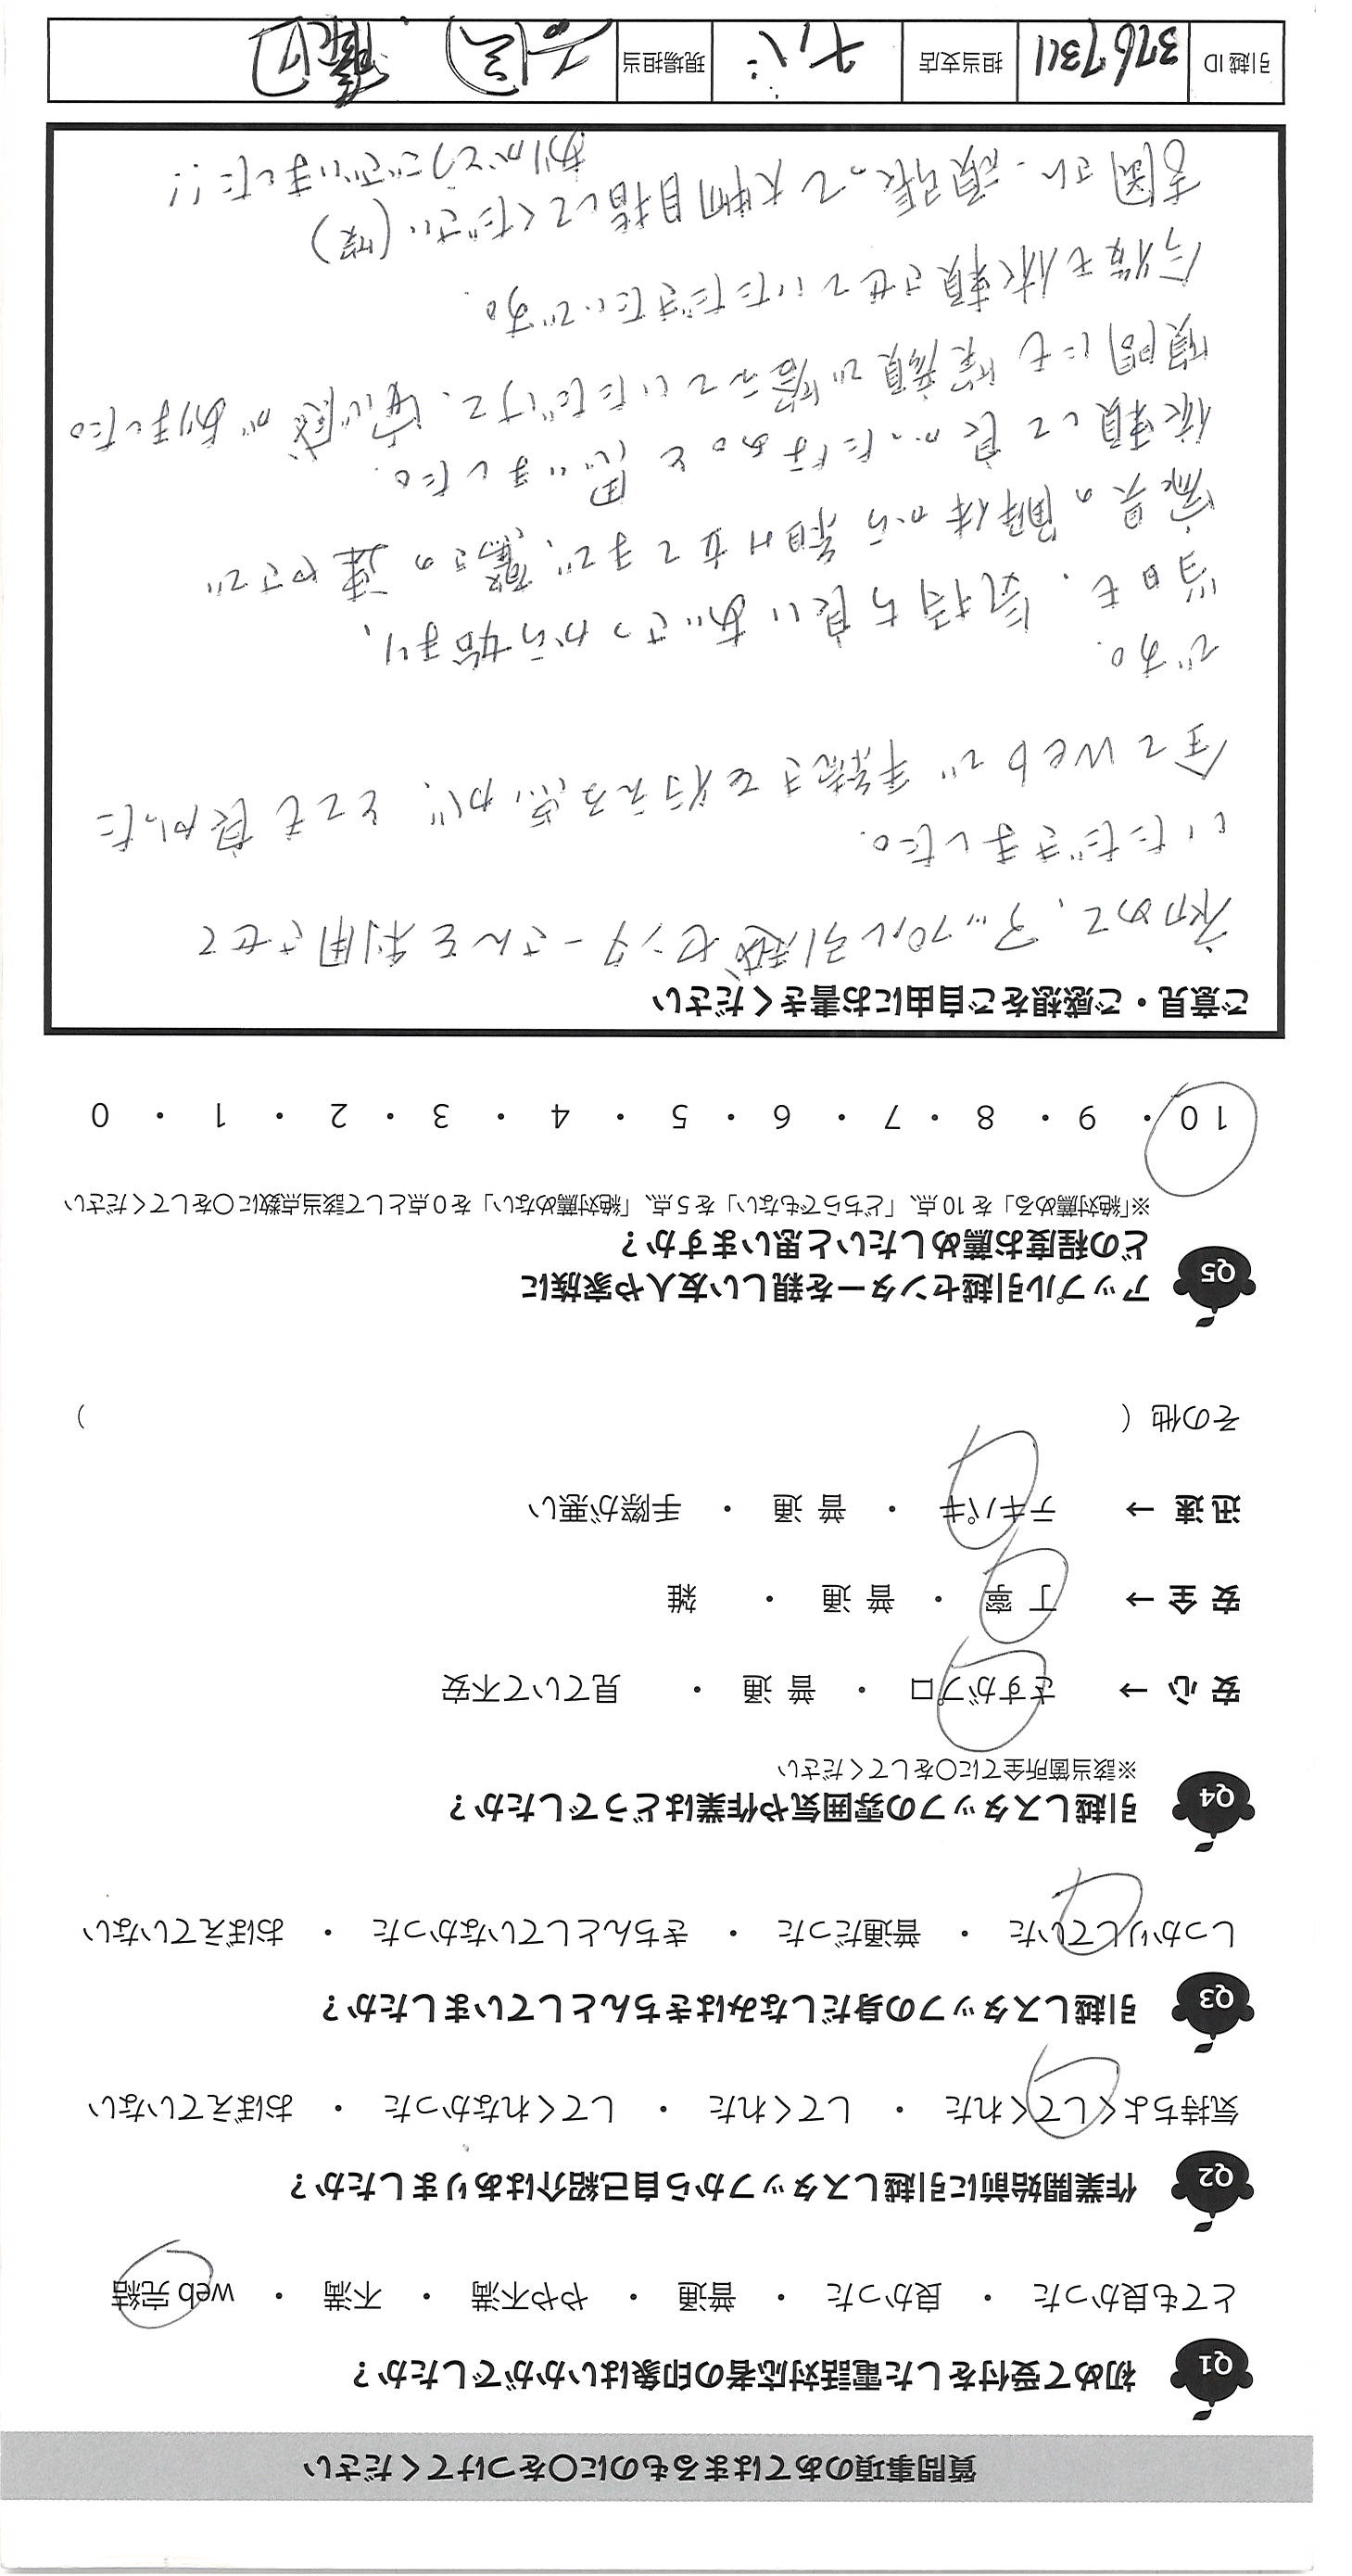 質問事項のあてはまるものに〇をつけてください
Q1 初めて受付をした電話対応者の印象はいかがでしたか？
とても良かった ・ 良かった ・ 普通 ・ やや不満 ・ 不満 ・ web 完結
Q2 作業開始前に引越しスタッフから自己紹介はありましたか？
気持ちよくしてくれた ・ してくれた ・ してくれなかった ・ おぼえていない
Q3 引越しスタッフの身だしなみはきちんとしていましたか？
しっかりしていた ・ 普通だった ・ きちんとしていなかった ・ おぼえていない
Q4 引越しスタッフの雰囲気や作業はどうでしたか？
※該当箇所全てに〇をしてください
安 心 → さすがプロ ・ 普 通 ・ 見ていて不安
安 全 → 丁 寧 ・ 普 通 ・ 雑
迅 速 → テキパキ ・ 普 通 ・ 手際が悪い
その他（ ）
Q5 アップル引越センターを親しい友人や家族に
どの程度お薦めしたいと思いますか？
※「絶対薦める」を 10 点、「どちらでもない」を 5 点、「絶対薦めない」を 0 点として該当点数に〇をしてください
10 ・ 9 ・ 8 ・ 7 ・ 6 ・ 5 ・ 4 ・ 3 ・ 2 ・ 1 ・ 0
ご意見・ご感想をご自由にお書きください
初めて、アップル引越センターさんを利用させて
いただきました。
全てWebで手続きを行える点が、とても良かった
です。
当日も、気持ち良いあいさつから始まり、
家具の解体から組み立てまで、驚きの速やさで
依頼して良かったなぁと思いました。
質問にも笑顔で答えていただけて、安心感がありました。
今後も依頼させていただきたいです。
吉岡さん、頑張って大物目指してください(笑)
ありがとうございました!!
引越 ID 3767311 担当支店 チバ 現場担当